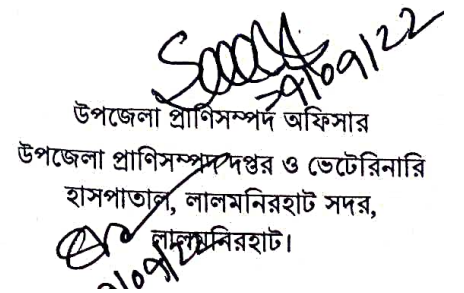 ২৯/০৯/২২
উপজেলা প্রাণিসম্পদ অফিসার
উপজেলা প্রাণিসম্পদ দপ্তর ও ভেটেরিনারি
হাসপাতাল, লালমনিরহাট সদর,
লালমনিরহাট।